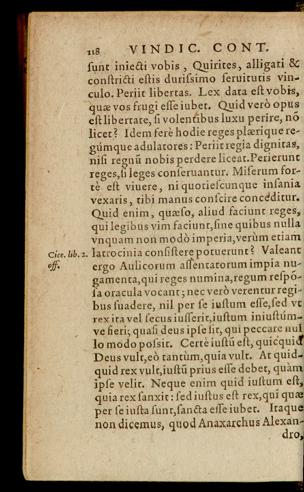 118 VINDIC. CONT.
sunt iniecti vobis, Quirites, alligati &
constricti estis durissimo seruitutis vin-
culo. Periit libertas. Lex data est vobis,
quæ vos frugi esse iubet. Quid verò opus
est libertate, si volentibus luxu perire, nõ
licet? Idem ferè hodie reges plærique re-
gúmque adulatores: Periit regia dignitas,
nisi regnũ nobis perdere liceat. Perierunt
reges, si leges conseruantur. Miserum for-
tè est viuere, ni quotiescunque insania
vexaris, tibi manus conscire concéditur.
Quid enim, quæso, aliud faciunt reges,
qui legibus vim faciunt, sine quibus nulla
vnquam non modò imperia, verùm etiam
Cice. lib. 2. latrocinia consistere potuerunt? Valeant
off. ergo Aulicorum assentatorum impia nu-
gamenta, qui reges numina, regum respõ-
sa oracula vocant; nec verò verentur regi-
bus suadere, nil per se iustum esse, sed vt
rex ita vel secus iusserit, iustum iniustúm-
ve fieri; quasi deus ipse sit, qui peccare nul
lo modo possit. Certè iustũ est, quicquid
Deus vult, eò tantùm, quia vult. At quid-
quid rex vult, iustũ prius esse debet, quàm
ipse velit. Neque enim quid iustum est,
quia rex sanxit: sed iustus est rex, qui quæ
per se iusta sunt, sancta esse iubet. Itaque
non dicemus, quod Anaxarchus Alexan-
dro,